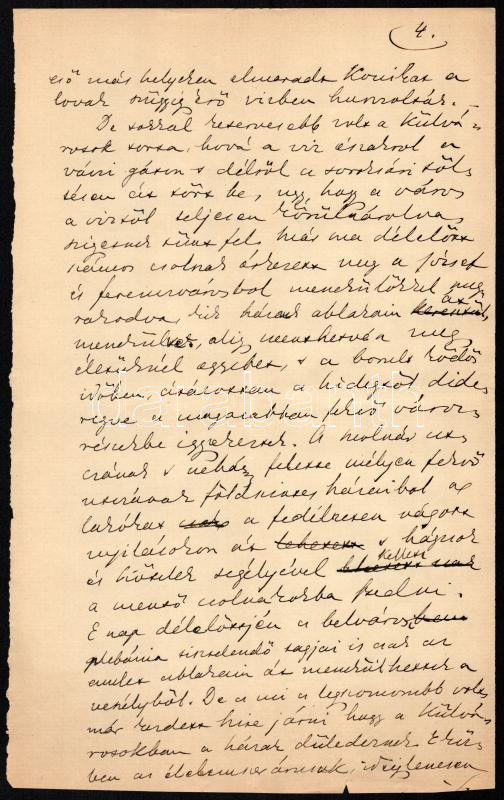 4.
eső más helyeken elmaradt kocsikat a
lovak szügyig érő vízben huzolták. —
De sokkal keservesebb volt a Külvá-
rosok sorsa, hová a viz északról a
váczi gáton s délről a soroksári töl-
tésen át tört be, ugy, hogy a város
a viztől teljesen körülzárolva,
szigetnek tünt fel. Már ma délelött
számos csolnak érkezett meg a József
és ferenczvárosból menekülőkkel meg-
rakodva, kik házaik ablakain át
menekültek, alig menthetvén meg
életöknél egyebet, s a borult ködös
időben, átázottan a hidegtöl dide-
regve a magasabban fekvő város-
részekbe igyekeztek. A molnár ut-
czának s néhány fekvő
utczának földszintes házaiból a
lakókat a fedélzeten vágott
nyilásokon át s hágcsók
és kötelek segélyével kellett
a mentő csolnakokba szedni.
E nap délelöttjén a belváros
plebánia tagjai is csak az
emelet ablakain át menekülhettek a
veszélyből. De a mi a legszomorubb volt,
már kezdett hire járni hogy a Külvá-
rosokban a házak düledeznek. Ekö-
ben az élelmiszer árusok,